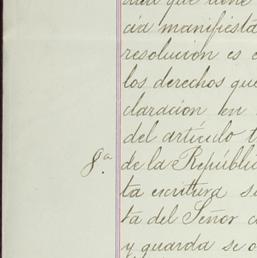 dad que tiene
cia manifiesta
resolucion es e
los derechos que
claracion en
del artículo t
8ª
de la Repúblic
ta escritura s
ta del Señor c
y guarda se o